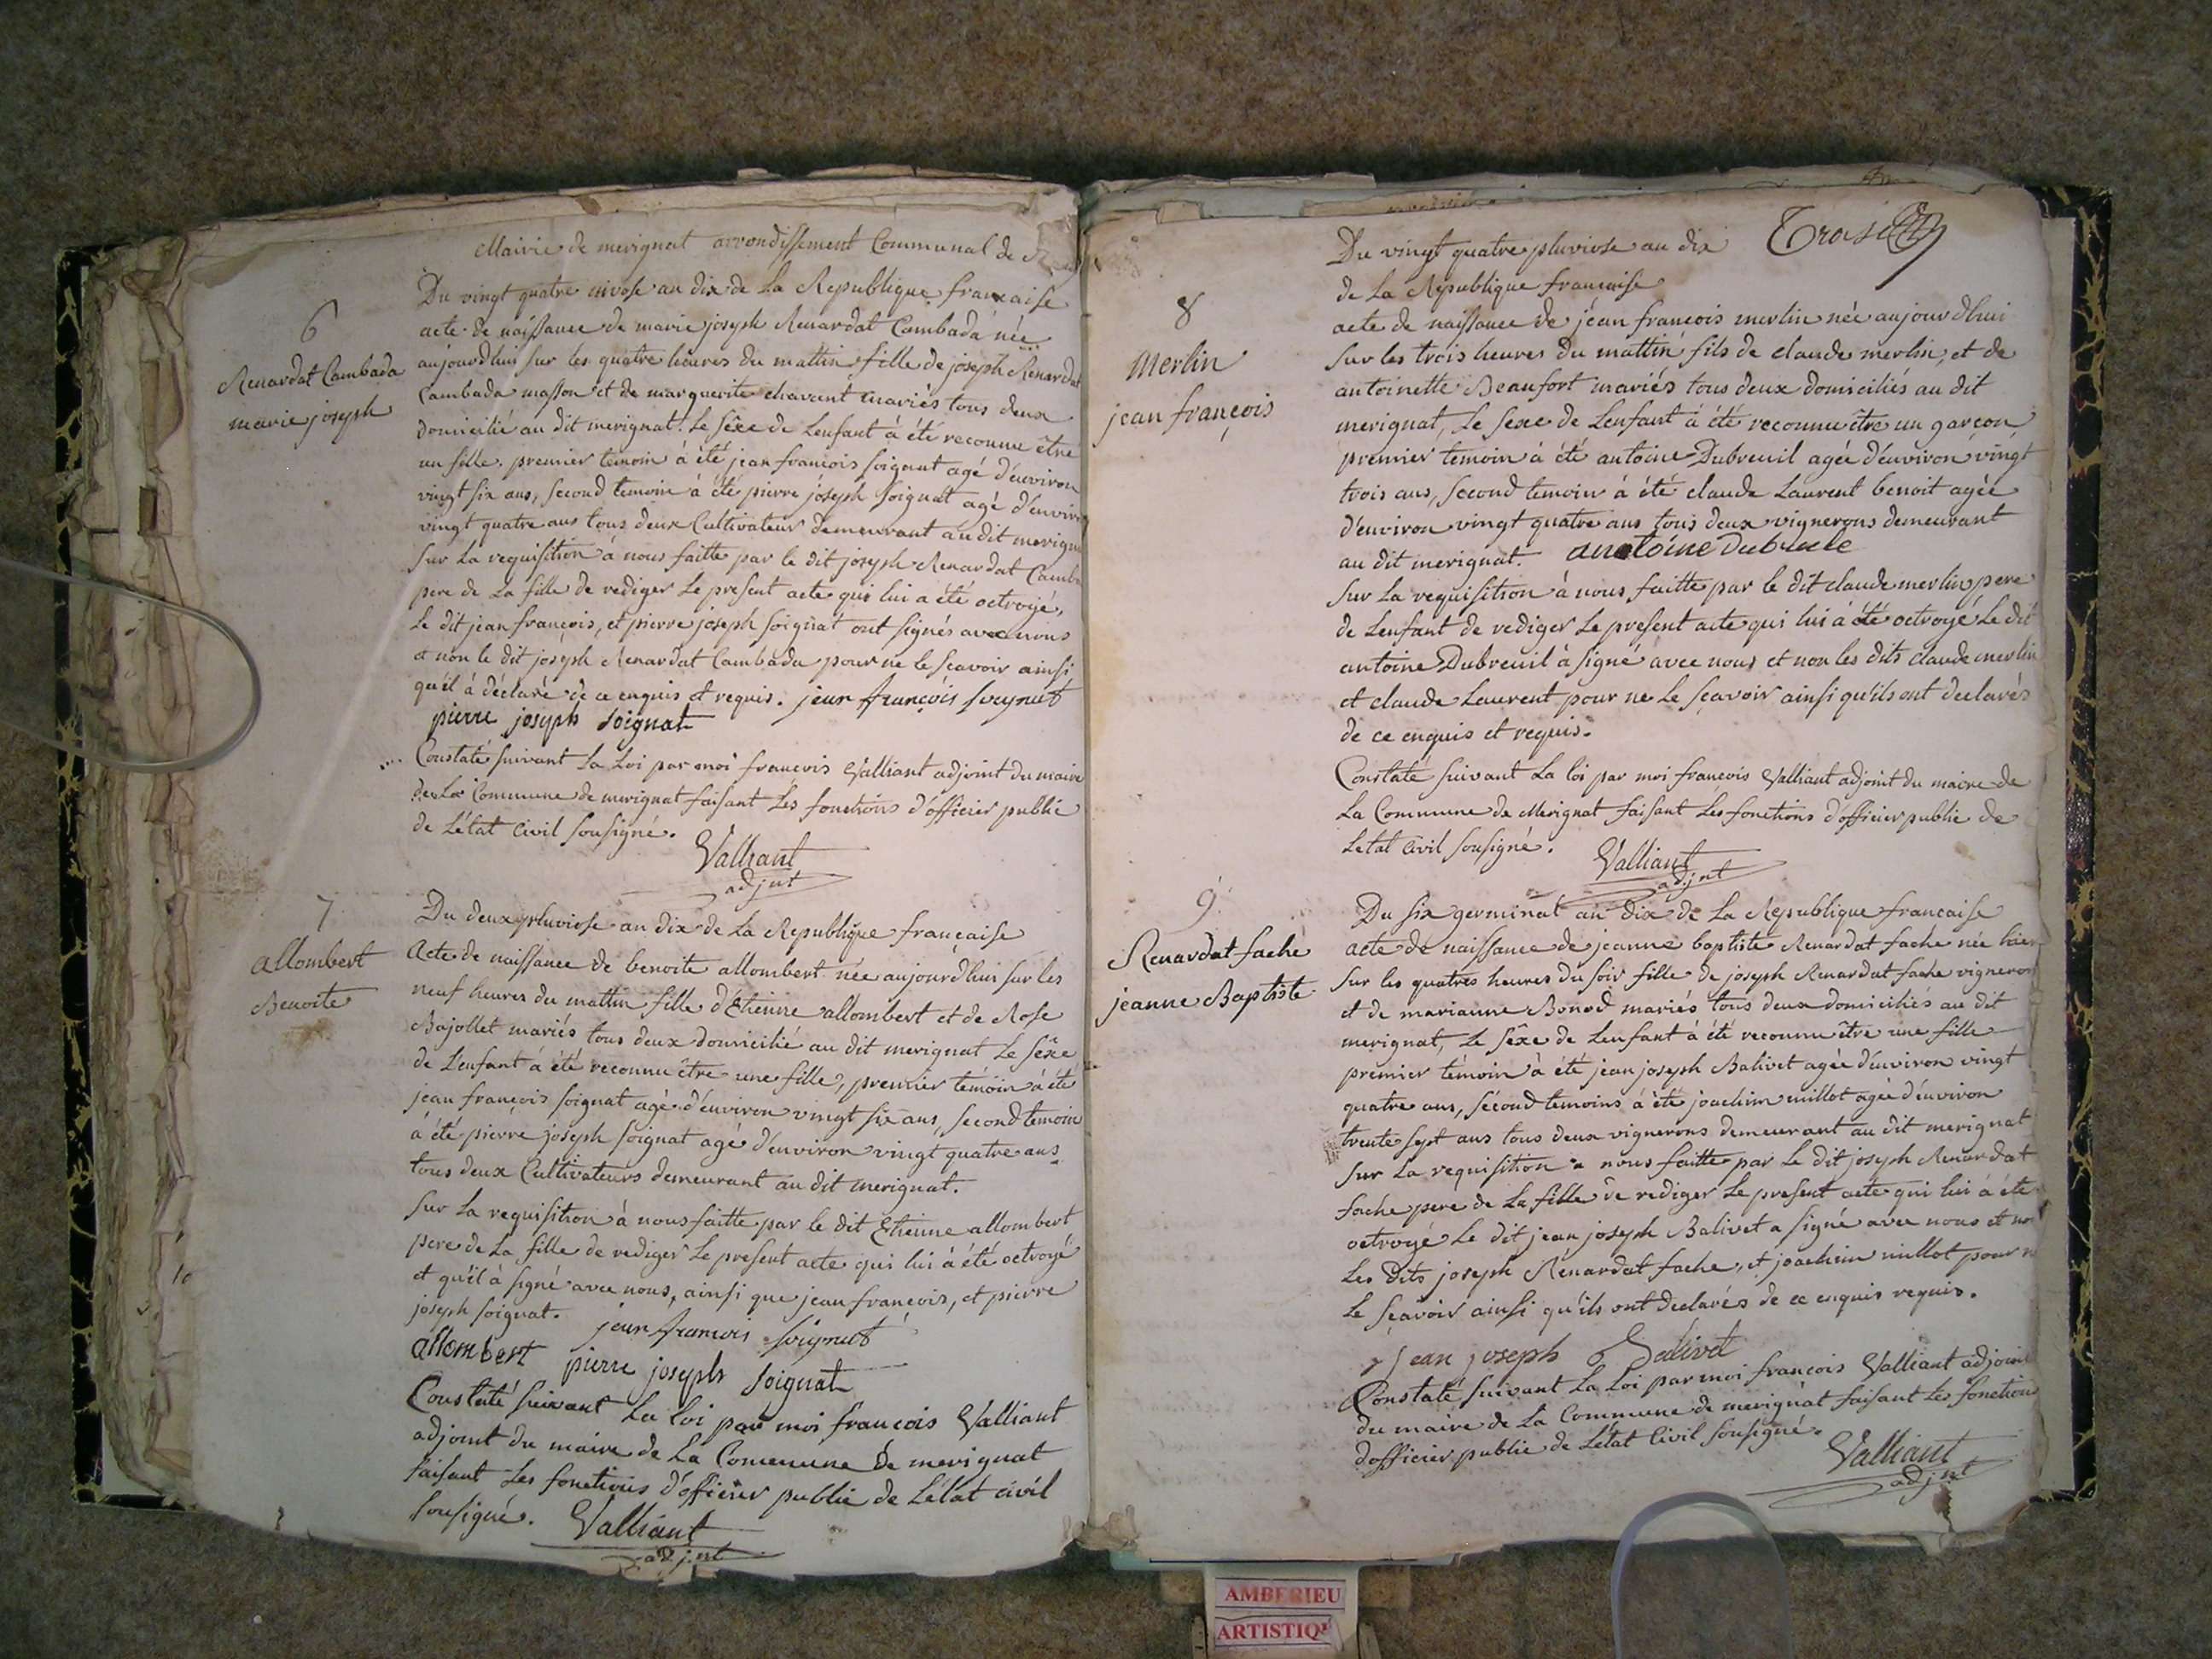 Mairie de merignat arrondissement Communal de
6
Renardat Cambada
marie joseph
Du vingt quatre nivose an dix de La Republique francaise
acte de naissance de marie joseph Renardat Cambada née
aujourdhui sur les quatre heures du mattin, fille de joseph Renardat
Cambada masson et de marguerite chavant mariés tous deux
domicilié au dit merignat. Le sêxe de Lenfant à été reconnu être
un fille. premier temoin à été jean francois soignat agé d'environ
vingt six ans, second temoin à été pierre joseph soignat agé d'environ
vingt quatre ans tous deux Cultivateur demeurant au dit merignat
sur La requisition à nous faitte par le dit joseph Renardat Camba
pere de La fille de rediger Le present acte qui lui a été octroyé,
Le dit jean françois, et pierre joseph soignat ont signés avec nous
et non le dit joseph Renardat Cambada pour ne le scavoir ainsi
qu'il à déclaré de ce enquis et requis. jean françois soignat
pierre joseph soignat
Constaté suivant La Loi par moi francois Valliant adjoint du maire
de La Commune de merignat faisant Les fonctions d'officier public
de L'état Civil sousigné.
Valliant
adjnt
7
allombert
Benoite
Du deux pluviose an dix de La Republique française
Acte de naissance de benoite allombert née aujourd'hui sur les
neuf heures du mattin fille d'Etienne allombert et de Rose
Bajollet mariés tous deux domicilié au dit merignat Le sêxe
de L'enfant à été reconnu être une fille, premier témoin à été
jean françois soignat agé d'environ vingt six ans, second temoin
à été pierre joseph soignat agé d'environ vingt quatre ans
tous deux Cultivateurs demeurant au dit merignat.
sur La requisition à nous faitte par le dit Etienne allombert
pere de La fille de rediger Le present acte qui lui à été octroyé
et qu'il à signé avec nous, ainsi que jean françois, et pierre
joseph soignat. jean francois soignat
allombert pierre joseph soignat
Constaté suivant La Loi par moi francois Valliant
adjoint du maire de La Commune de merignat
faisant Les fonctions d'officier public de L'état civil
sousigné. Valliant
adjnt
Du vingt quatre pluviose an dix
de La Republique francaise
8
Merlin
jean françois
acte de naissance de jean francois merlin née aujourdhui
sur les trois heures du mattin fils de claude merlin, et de
antoinette Beaufort mariés tous deux domiciliés au dit
merignat, Le sexe de Lenfant à été reconnu être un garcon
premier temoin à été antoine Dubreuil agée d'environ vingt
trois ans, second temoin à été claude Laurent benoit agée
d'environ vingt quatre ans tous deux vignerons demeurant
au dit merignat. anatoine Dubruele
sur La requisition à nous faitte par le dit claude merlin pere
de Lenfant de rediger Le present acte qui lui à été octroyé Le dit
antoine Dubreuil à signé avec nous et non les dits claude merlin
et claude Laurent pour ne Le sçavoir ainsi qu'ils ont declarés
de ce enquis et requis.
Constaté suivant La loi par moi francois Valliant adjoint du maire de
La Commune de Merignat faisant Les fonctions d'officier public de
Letat Civil sousigné. Valliant
adjnt
9
Renardat fache
jeanne Baptiste
Du six germinal an dix de La Republique francaise
acte de naissance de jeanne baptiste Renardat fache née hier
sur les quatres heures du soir fille de joseph Renardat fache vigneron
et de marianne Bonod mariés tous deux domiciliés au dit
merignat, Le sêxe de Lenfant à été reconnu être une fille
premier témoin à été jean joseph Balivet agée d'environ vingt
quatre ans, second temoins à été joachim millot agée d'environ
trente sept ans tous deux vignerons demeurant au dit merignat
sur La requisition a nous faitte par Le dit joseph Renardat
fache pere de La fille de rediger Le present acte qui lui à été
octroyé Le dit jean joseph Balivet a signé avec nous et non
Les Dits joseph Renardat fache, et joachim millot pour n
Le sçavoir ainsi qu'ils ont declarés de ce enquis requis.
jean joseph Balivet
Constaté suivant La Loi par moi françois Valliant adjoint
du maire de La Commune de merignat faisant Les fonction
d'officier public de L'état Civil sousigné.
Valliant
adjnt
AMBERIEU
ARTISTIQ